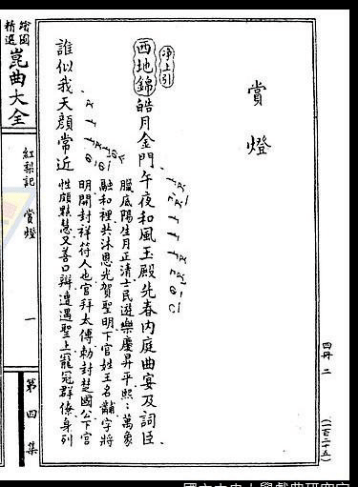 四冊 二 (一百二十五)
賞燈
淨上引
西地錦 皓月金門午夜和風玉殿先春內庭曲宴及詞臣
誰似我天顏常近
臘底陽生月正清士民遊樂慶昇平熙熙萬象
融和裡共沐恩光賀聖明下官姓王名黼字將
明開封祥符人也官拜太傅勅封楚國公下官
性頗黠慧又善口辯遭遇聖上寵冠群僚身列
繪圖精選崑曲大全
紅梨記 賞燈 一 第四集
國立中央大學戲曲研究室